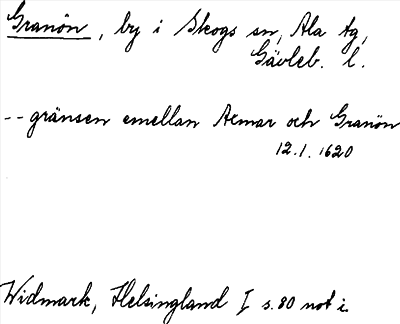 Granön, by i Skogs sn, Ala tg,
Gävleb. l.
-- gränsen emellan Acmar och Granön
12.1.1620
Widmark, Helsingland I s.80 not i.